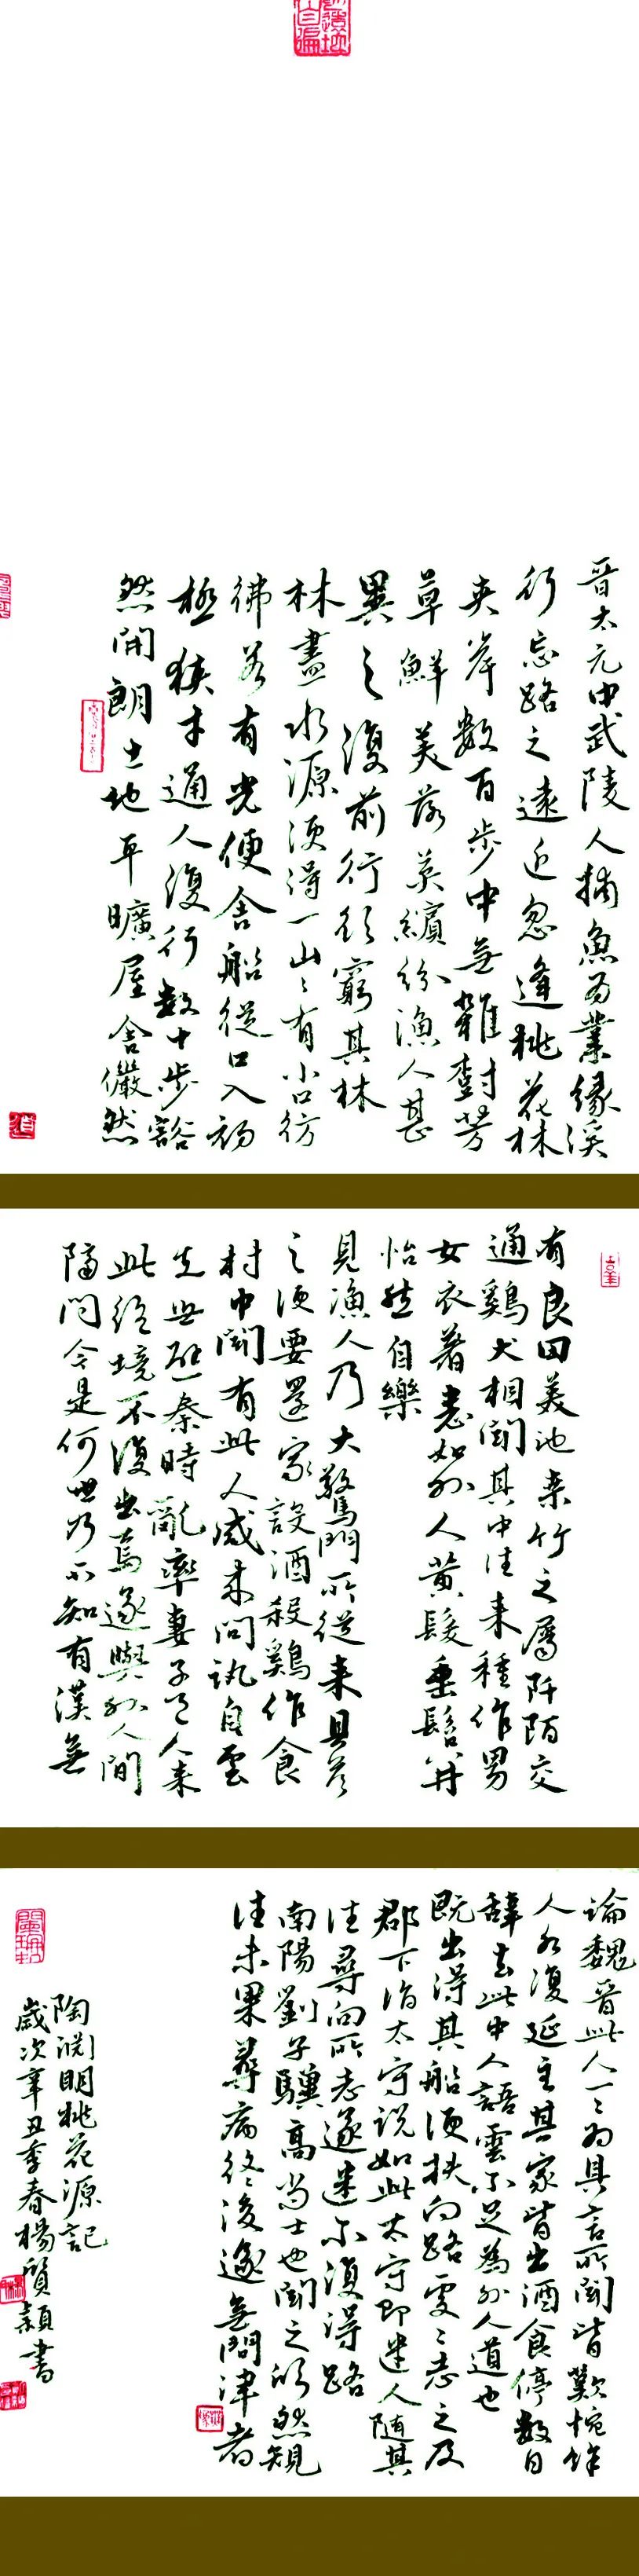 晋太元中武陵人捕魚為業緣溪
行忘路之遠近忽逢桃花林
夹岸數百步中無雜樹芳
草鮮美落英繽紛漁人甚
異之復前行欲窮其林
林盡水源便得一山山有小口彷
彿若有光便舍船從口入初
極狹才通人復行數十步豁
然開朗土地平曠屋舍儼然
有良田美池桑竹之屬阡陌交
通雞犬相聞其中往来種作男
女衣著悉如外人黄髮垂髫并
怡然自樂
見漁人乃大驚問所從来具答
之便要還家設酒殺雞作食
村中聞有此人咸来問訊自雲
先世避秦時亂率妻子邑人来
此絕境不復出焉遂與外人間
隔問今是何世乃不知有漢無
論魏晋此人一一為具言所聞皆歎惋餘
人各復延至其家皆出酒食停數日
辭去此中人語雲不足為外人道也
既出得其船便扶向路處處志之及
郡下詣太守說如此太守即遣人隨其
往尋向所志遂迷不復得路
南陽劉子驥高尚士也聞之欣然規
往未果尋病終後遂無問津者
陶淵明桃花源記
歲次辛丑季春楊質穎書